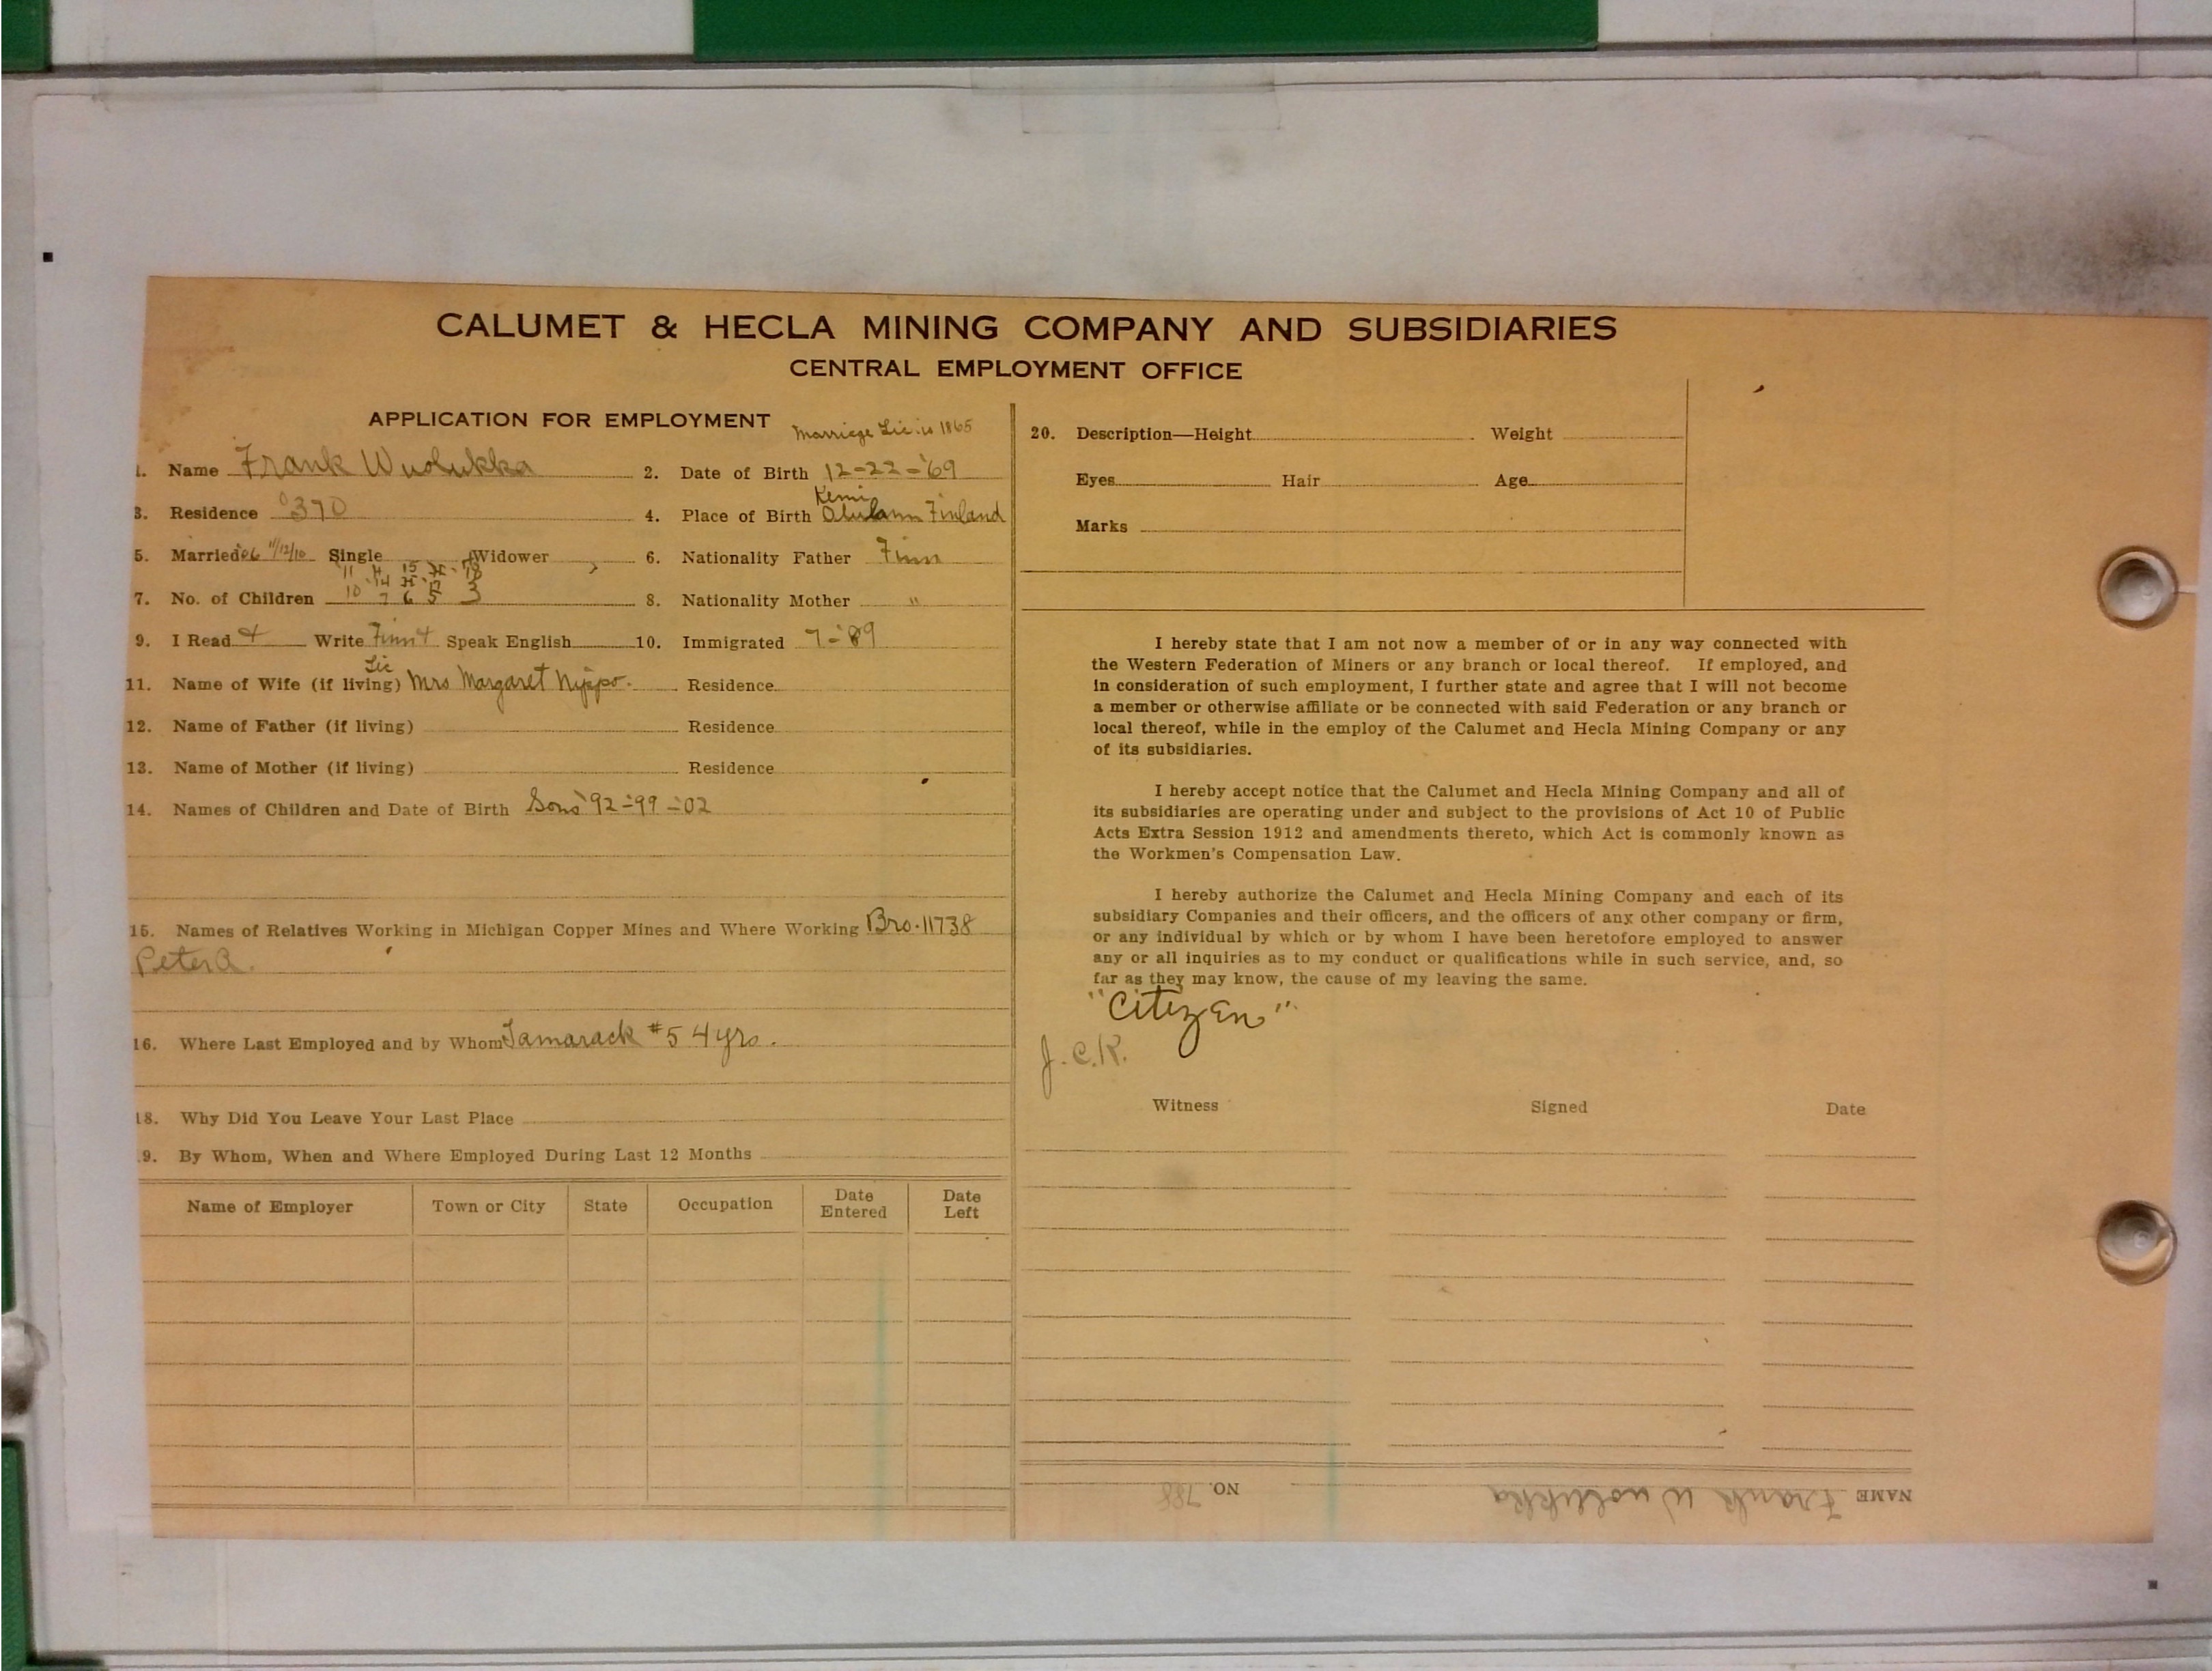 CALUMET & HECLA MINING COMPANY AND SUBSIDIARIES
CENTRAL EMPLOYMENT OFFICE
APPLICATION FOR EMPLOYMENT
Marriage Lic. is 1865
1. Name Frank Wuolukka 2. Date of Birth 12-22-'69
3. Residence 370 4. Place of Birth Kemi Finland
5. Married 11/12/10 Single Widower 6. Nationality Father Finn
11 14 15 18
7. No. of Children 10 7 6 5 3 8. Nationality Mother "
9. I Read Write Finn Speak English 10. Immigrated 7-'89
Lic
11. Name of Wife (if living) Mrs Margaret Nippo. Residence
12. Name of Father (if living) Residence
13. Name of Mother (if living) Residence
14. Names of Children and Date of Birth Sons '92-'99-'02
15. Names of Relatives Working in Michigan Copper Mines and Where Working Bro. 11738
Peter A.
16. Where Last Employed and by Whom Tamarack #5 4 yrs.
18. Why Did You Leave Your Last Place
9. By Whom, When and Where Employed During Last 12 Months
Name of Employer Town or City State Occupation Date Entered Date Left
20. Description—Height Weight
Eyes Hair Age
Marks
I hereby state that I am not now a member of or in any way connected with
the Western Federation of Miners or any branch or local thereof. If employed, and
in consideration of such employment, I further state and agree that I will not become
a member or otherwise affiliate or be connected with said Federation or any branch or
local thereof, while in the employ of the Calumet and Hecla Mining Company or any
of its subsidiaries.
I hereby accept notice that the Calumet and Hecla Mining Company and all of
its subsidiaries are operating under and subject to the provisions of Act 10 of Public
Acts Extra Session 1912 and amendments thereto, which Act is commonly known as
the Workmen's Compensation Law.
I hereby authorize the Calumet and Hecla Mining Company and each of its
subsidiary Companies and their officers, and the officers of any other company or firm,
or any individual by which or by whom I have been heretofore employed to answer
any or all inquiries as to my conduct or qualifications while in such service, and, so
far as they may know, the cause of my leaving the same.
"Citizen"
J.C.R.
Witness Signed Date
NAME Frank Wuolukka NO. 788